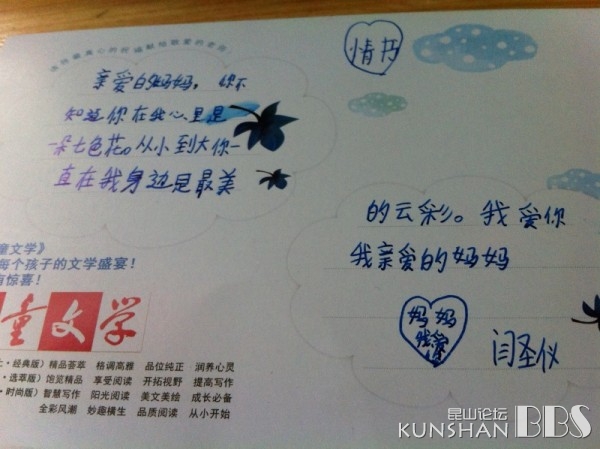 最真心的祝福献给敬爱的老师!
情书
亲爱的妈妈，你不
知道你在我心里是
一朵七色花。从小到大你一
直在我身边是最美
的云彩。我爱你
我亲爱的妈妈
妈妈
我爱你
闫圣仪
童文学》
每个孩子的文学盛宴！
有惊喜！
童文学
·经典版）精品荟萃 格调高雅 品位纯正 润养心灵
·选萃版）饱览精品 享受阅读 开拓视野 提高写作
·时尚版）智慧写作 阳光阅读 美文美绘 成长必备
全彩风潮 妙趣横生 品质阅读 从小开始
昆山论坛
KUNSHAN BBS